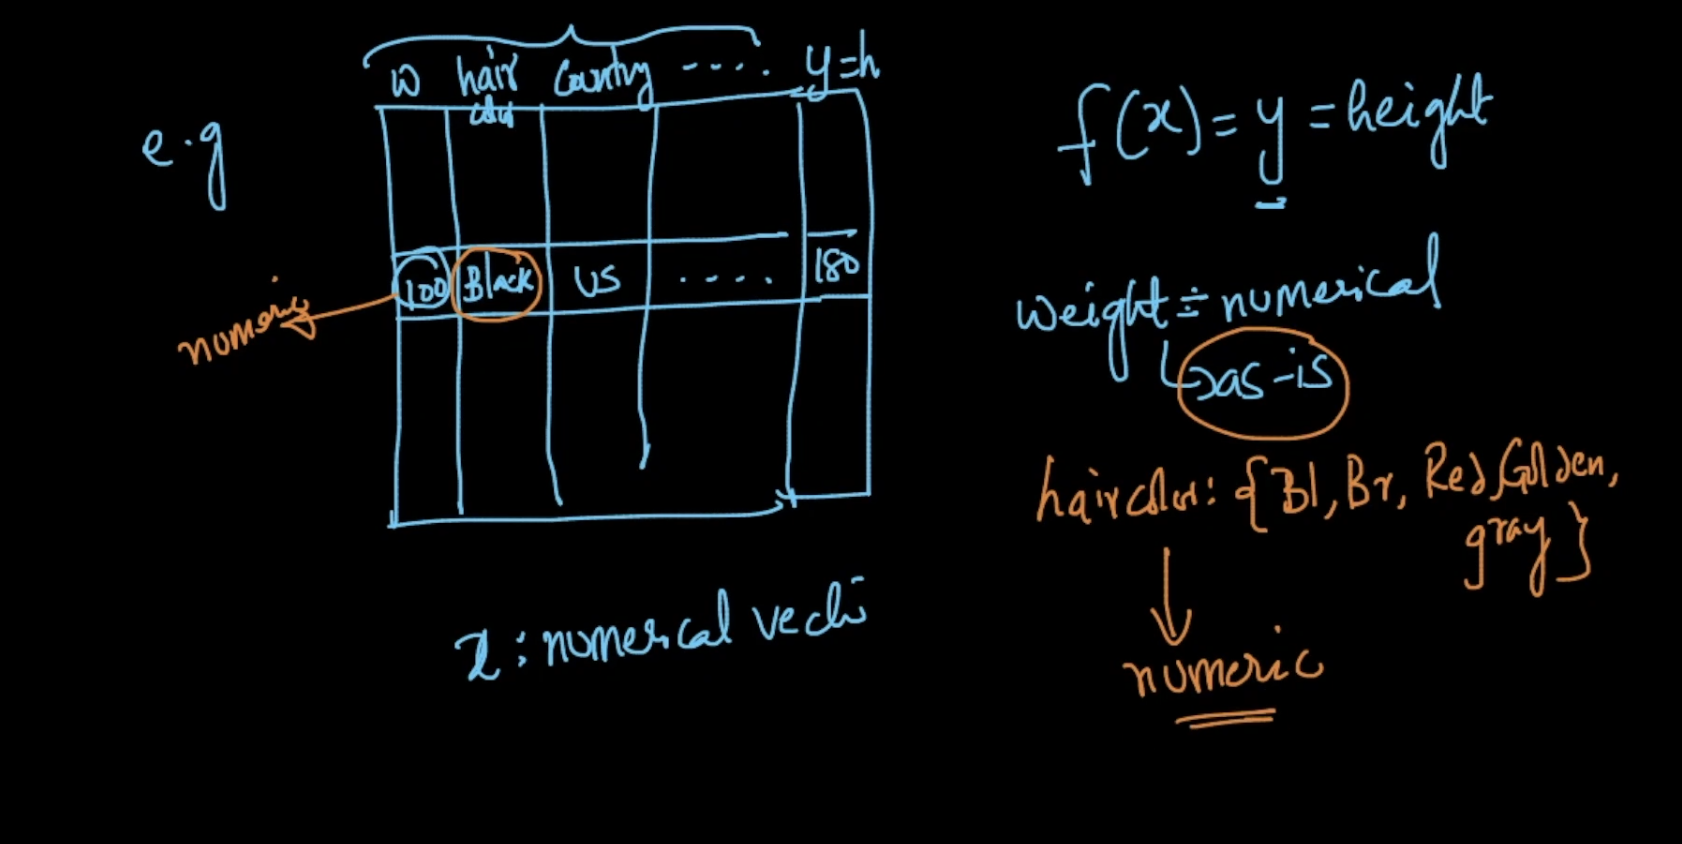 e.g
w hair color Country .... y=h
100 Black US .... 180
numeric
x : numerical vecto
f(x) = y = height
weight ÷ numerical
↳ as-is
haircolor: {Bl, Br, Red, Golden,
gray}
numeric